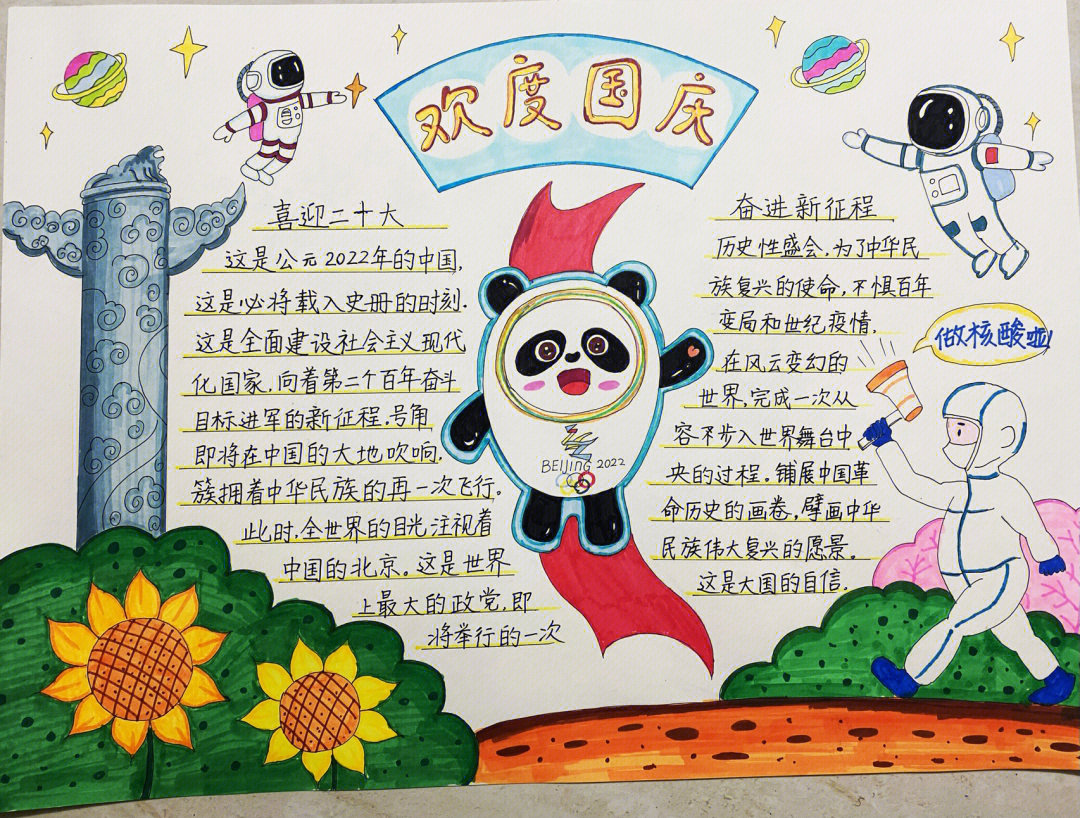 欢度国庆
喜迎二十大
这是公元2022年的中国,
这是必将载入史册的时刻.
这是全面建设社会主义现代
化国家,向着第二个百年奋斗
目标进军的新征程.号角
即将在中国的大地吹响.
簇拥着中华民族的再一次飞行.
此时,全世界的目光注视着
中国的北京。这是世界
上最大的政党,即
将举行的一次
BEIJING 2022
奋进新征程
历史性盛会,为了中华民
族复兴的使命,不惧百年
变局和世纪疫情,
在风云变幻的
世界,完成一次从
容不步入世界舞台中
央的过程。铺展中国革
命历史的画卷,擘画中华
民族伟大复兴的愿景。
这是大国的自信.
做核酸啦!